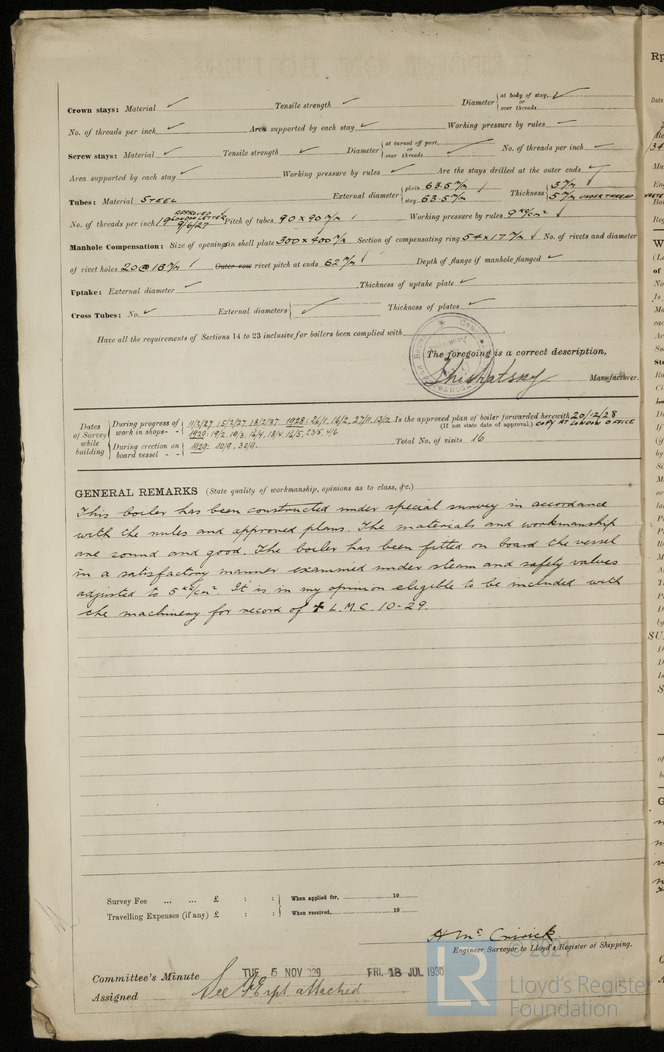 Crown stays: Material ✓ Tensile strength ✓ Diameter { at body of stay, or over threads ✓
No. of threads per inch ✓ Area supported by each stay ✓ Working pressure by rules ✓
Screw stays: Material ✓ Tensile strength ✓ Diameter { at turned off part, or over threads ✓ No. of threads per inch ✓
Area supported by each stay ✓ Working pressure by rules ✓ Are the stays drilled at the outer ends ✓
Tubes: Material STEEL External diameter { plain 63.5 m/m stay 63.5 m/m Thickness { 3 m/m 5 m/m UNDER THREAD
No. of threads per inch 19 APPROVED LONDON LETTER 9/6/27 Pitch of tubes 90 x 90 m/m Working pressure by rules 9 kg/cm²
Manhole Compensation: Size of opening in shell plate 300 x 400 m/m Section of compensating ring 54 x 17 m/m No. of rivets and diameter
of rivet holes 20 @ 18 m/m Outer row rivet pitch at ends 62 m/m Depth of flange if manhole flanged ✓
Uptake: External diameter ✓ Thickness of uptake plate ✓
Cross Tubes: No. ✓ External diameters { ✓ Thickness of plates ✓
Have all the requirements of Sections 14 to 23 inclusive for boilers been complied with
The foregoing is a correct description,
Manufacturer.
Dates of Survey while building { During progress of work in shops - - { 11/2/27 15/2/27 18/2/27 1928: 26/1, 16/2, 27/11, 13/12 Is the approved plan of boiler forwarded herewith 20/12/28
1929: 19/2, 19/3, 16/4, 18/4, 16/5, 23/5 4/6 (If not state date of approval.) COPY AT LONDON OFFICE
During erection on board vessel - - { 1929: 10/9, 30/9. Total No. of visits 16
GENERAL REMARKS (State quality of workmanship, opinions as to class, &c.)
This boiler has been constructed under special survey in accordance
with the rules and approved plans. The materials and workmanship
are sound and good. The boiler has been fitted on board the vessel
in a satisfactory manner examined under steam and safety valves
adjusted to 5 kg/cm². It is in my opinion eligible to be included with
the machinery for record of ✠ L.M.C. 10-29.
Survey Fee ... ... £ : : } When applied for, 19
Travelling Expenses (if any) £ : : } When received, 19
Engineer Surveyor to Lloyd's Register of Shipping.
Committee's Minute TUE. 5 NOV 1929 FRI. 18 JUL 1930
Assigned See F.E. rpt attached
© 2021
LR Lloyd's Register
Foundation